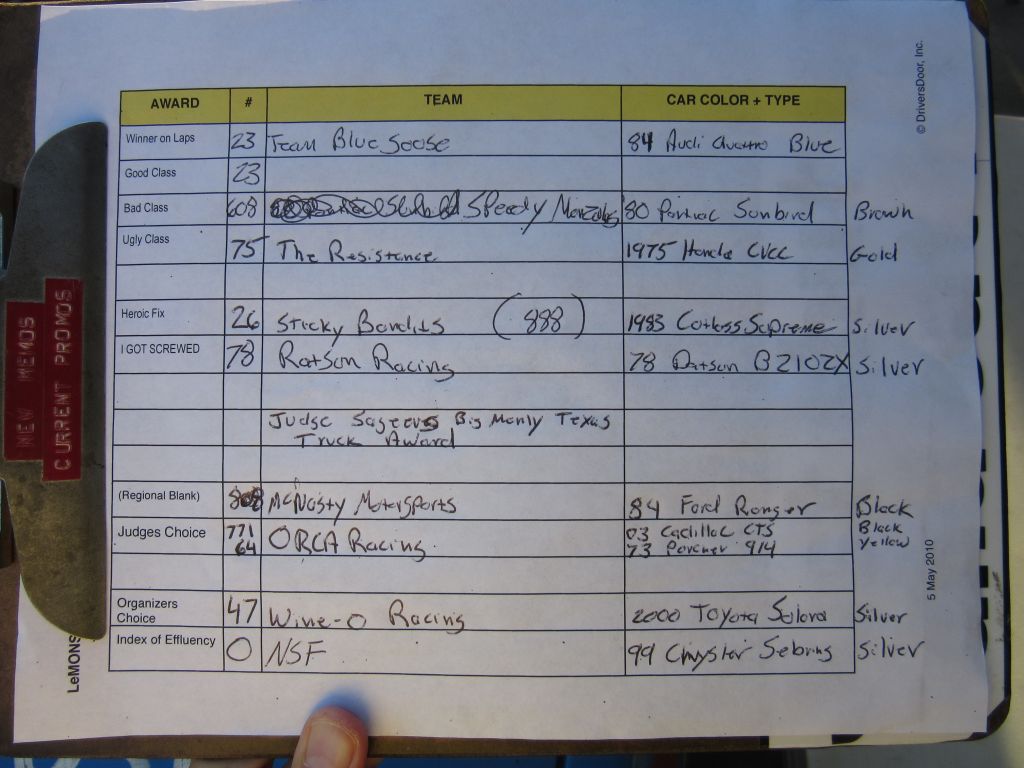 © DriversDoor, Inc.
AWARD # TEAM CAR COLOR + TYPE
Winner on Laps 23 Team Blue Goose 84 Audi Quattro Blue
Good Class 23
Bad Class 608 Speedy Monzales 80 Pontiac Sunbird Brown
Ugly Class 75 The Resistance 1975 Honda CVCC Gold
Heroic Fix 26 Sticky Bandits (888) 1983 Cutlass Supreme Silver
I GOT SCREWED 78 Ratsun Racing 78 Datsun B210ZX Silver
Judge Sageev's Big Manly Texas
Truck Award
(Regional Blank) McNasty Motorsports 84 Ford Ranger Black
Judges Choice 771 ORCA Racing 03 Cadillac CTS Black
64 73 Porcher 914 Yellow
Organizers
Choice 47 Wine-O Racing 2000 Toyota Solara Silver
Index of Effluency 0 NSF 99 Chrysler Sebring Silver
NEW MEMOS
CURRENT PROMOS
LeMONS
5 May 2010